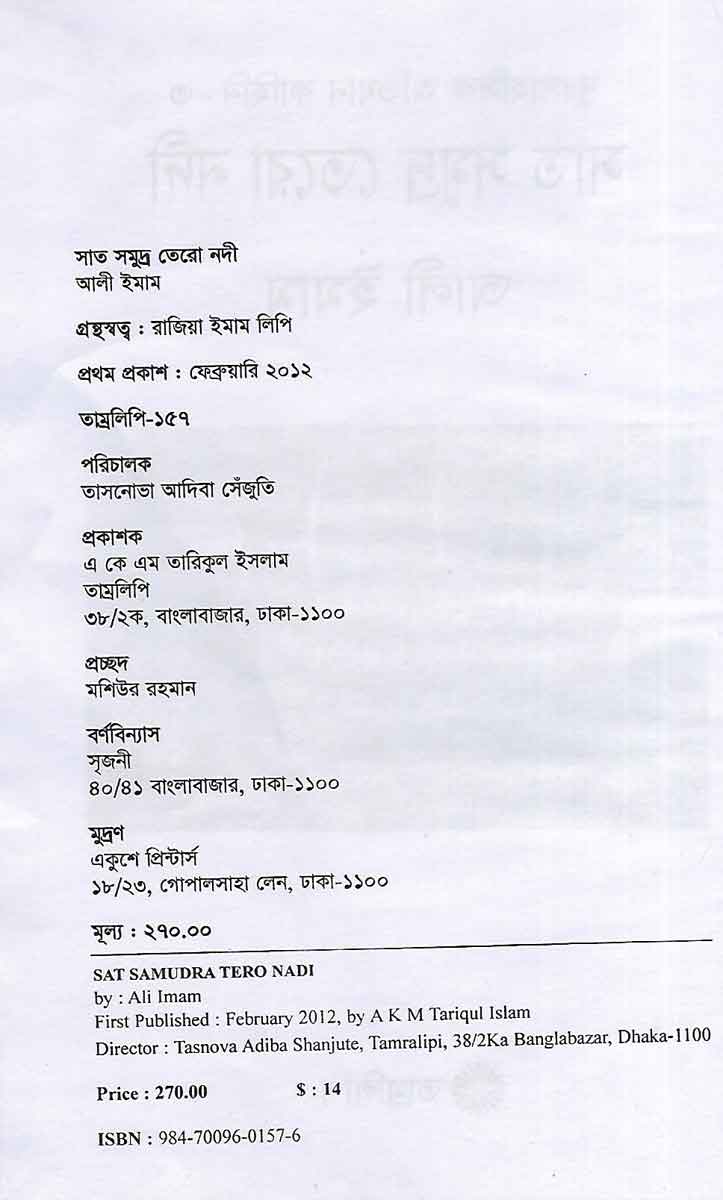 সাত সমুদ্র তেরো নদী
আলী ইমাম
গ্রন্থস্বত্ব : রাজিয়া ইমাম লিপি
প্রথম প্রকাশ : ফেব্রুয়ারি ২০১২
তাম্রলিপি-১৫৭
পরিচালক
তাসনোভা আদিবা সেঁজুতি
প্রকাশক
এ কে এম তারিকুল ইসলাম
তাম্রলিপি
৩৮/২ক, বাংলাবাজার, ঢাকা-১১০০
প্রচ্ছদ
মশিউর রহমান
বর্ণবিন্যাস
সৃজনী
৪০/৪১ বাংলাবাজার, ঢাকা-১১০০
মুদ্রণ
একুশে প্রিন্টার্স
১৮/২৩, গোপালসাহা লেন, ঢাকা-১১০০
মূল্য : ২৭০.০০
SAT SAMUDRA TERO NADI
by : Ali Imam
First Published : February 2012, by A K M Tariqul Islam
Director : Tasnova Adiba Shanjute, Tamralipi, 38/2Ka Banglabazar, Dhaka-1100
Price : 270.00 $ : 14
ISBN : 984-70096-0157-6